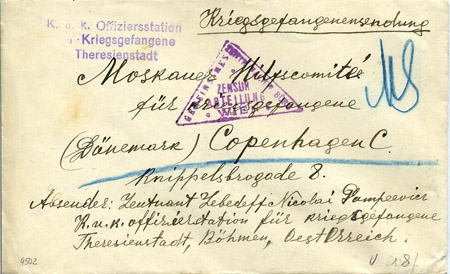 Kriegsgefangenensendung
K. u. K. Offiziersstation
Kriegsgefangene
Theresienstadt
ZENSUR
ABTEILUNG
WIEN
Moskauer Hilfscomité
für Kriegsgefangene
(Dänemark) Copenhagen C.
Knippelsbrogade 8.
Absender: Leutnant Lebedeff Nicolai Pompeevicz
K.u.K. offizierstation für kriegsgefangene
Theresienstadt, Böhmen, Oesterreich.